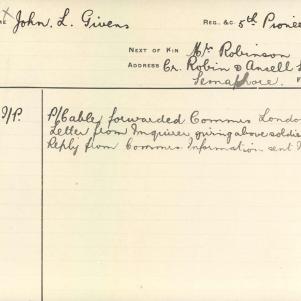 John L. Givens REG. &C. 5th Pionee
NEXT OF KIN Mr Robinson
ADDRESS Cr. Robin & Ansell
Semaphore. F
P/Cable forwarded Commrs Londo
Letter from Inquirer giving above soldie
Reply from Commrs Information sent